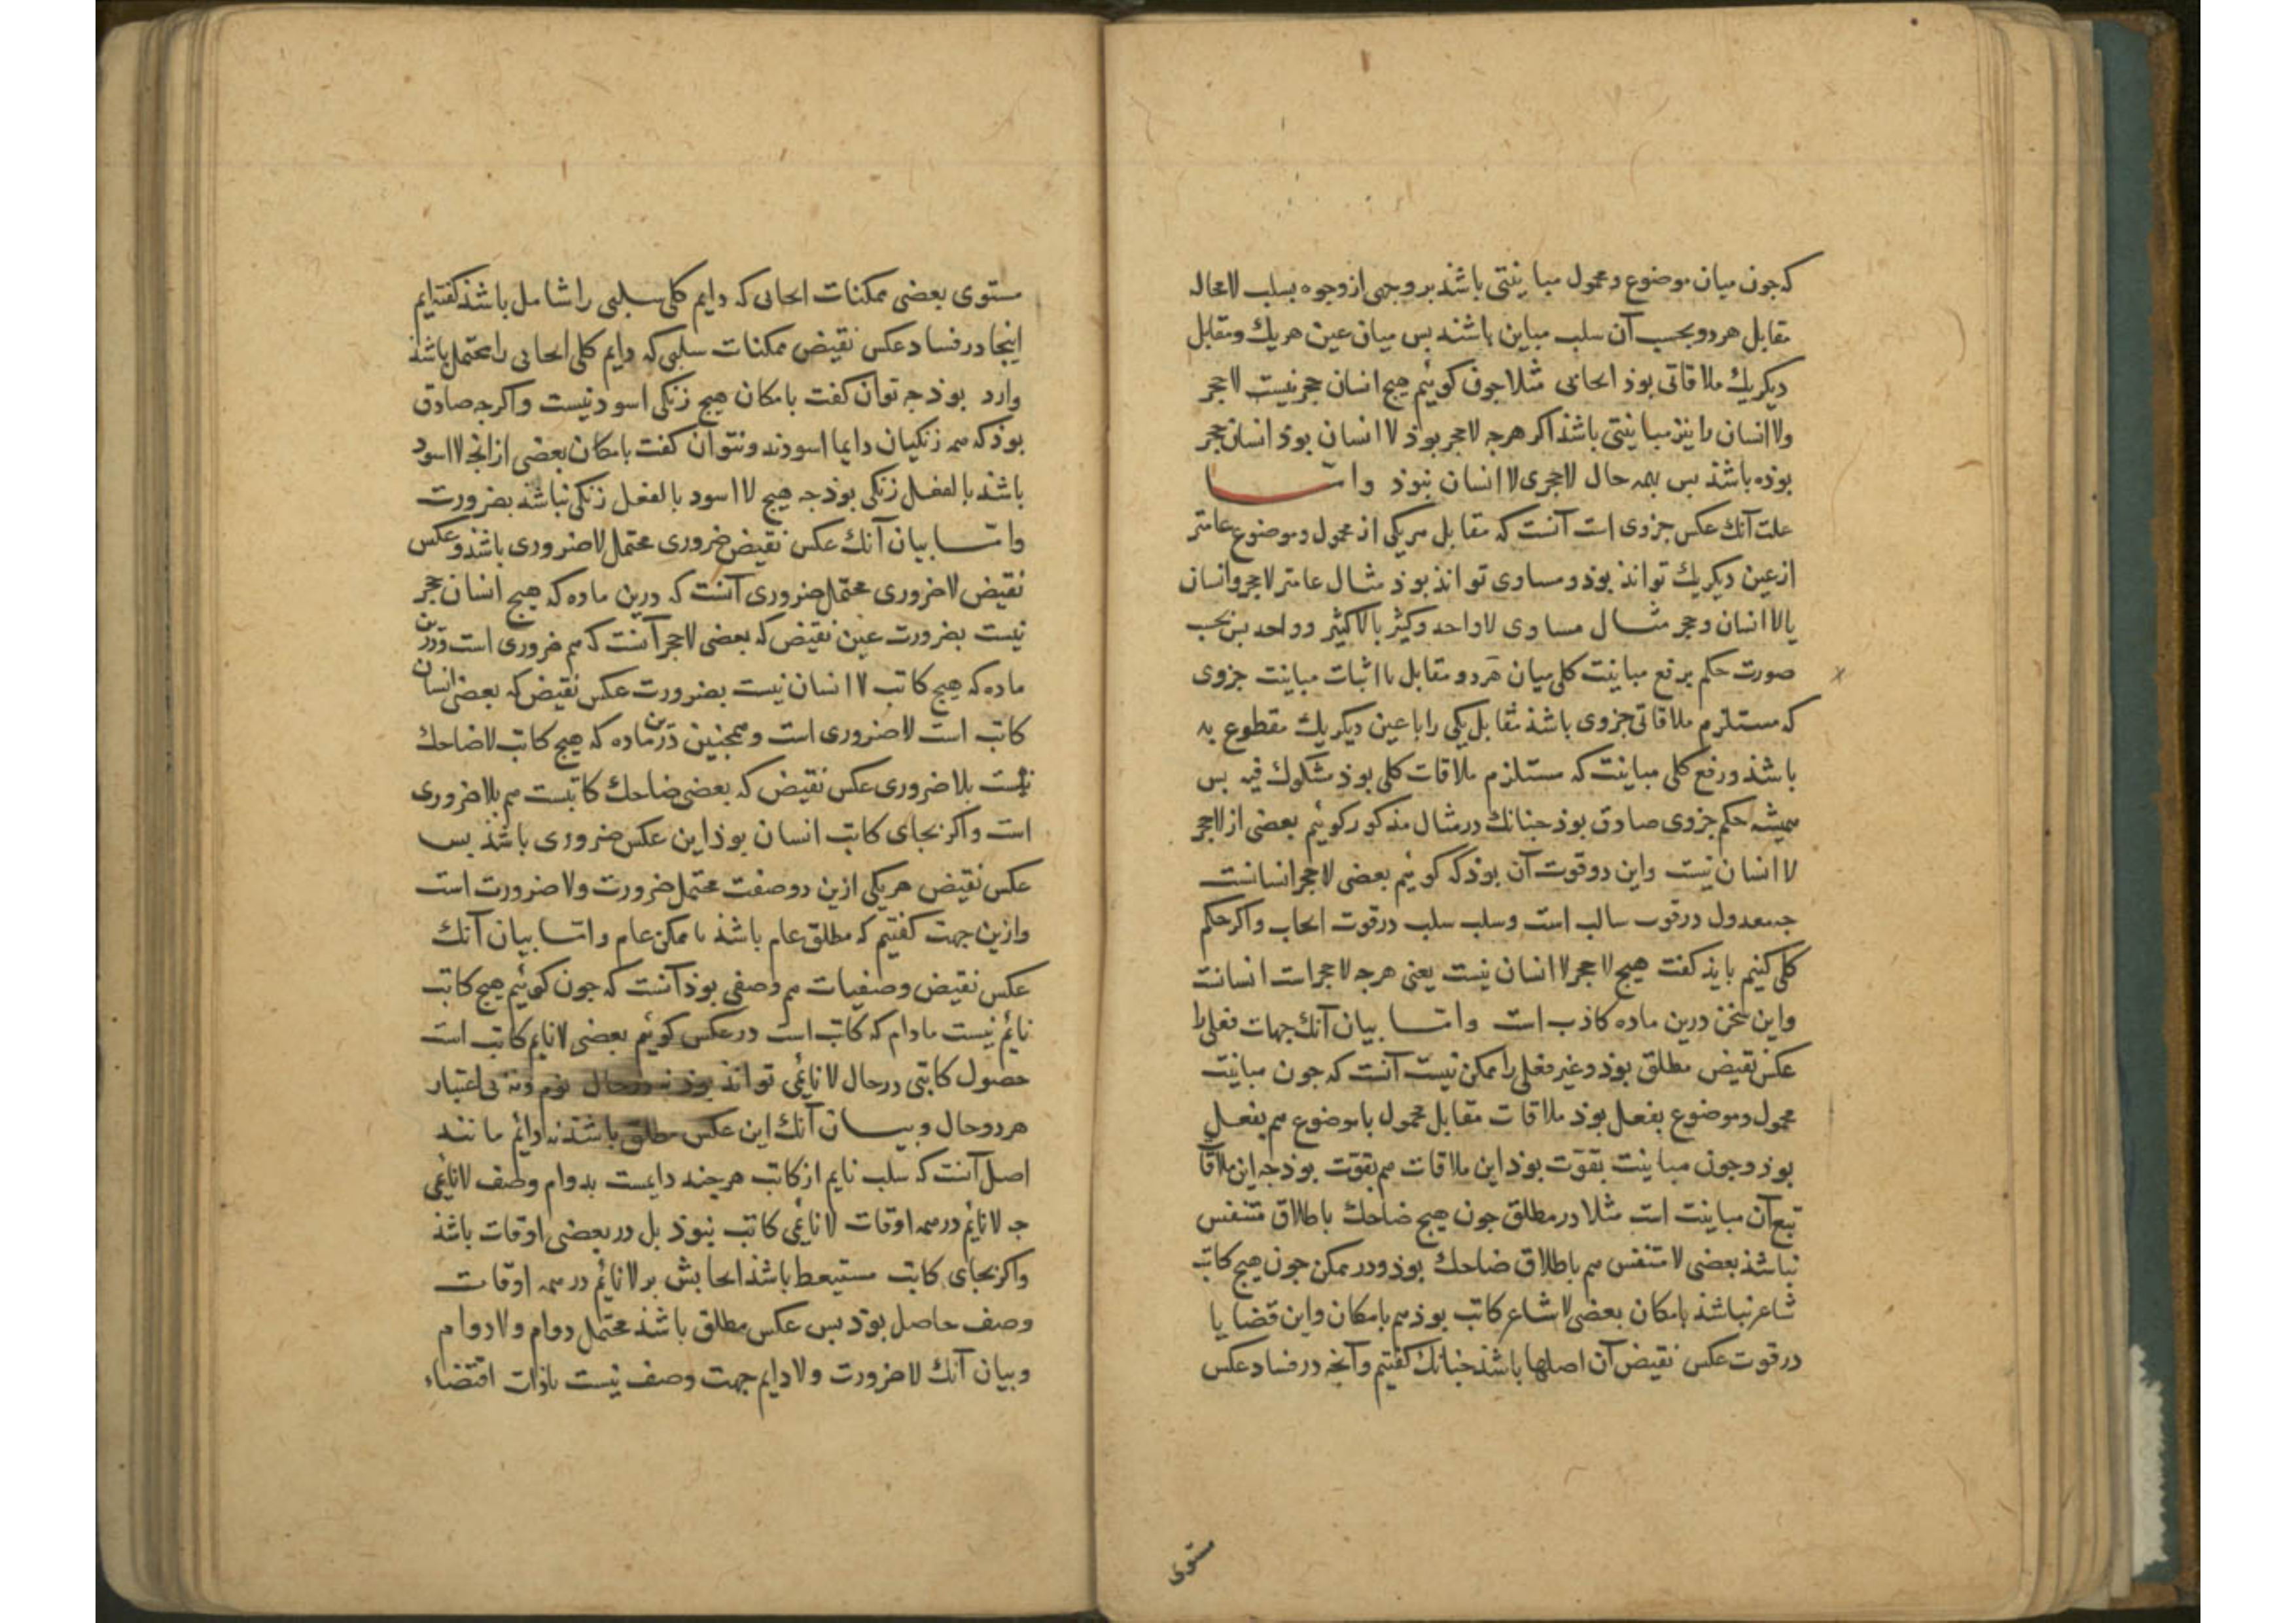 که جون میان موضوع و محمول مباینتی باشذ بر وجهی از وجوه بسلب لامحاله
مقابل هر دو بحسب آن سلب مباین باشند بس میان عین هر یك و مقابل
دیکر یك ملاقاتی بوذ ایجابی مثلا جون کوئیم هیج انسان حجر نیست لاحجر
و لاانسان را نیز مباینتی باشذ اکر هرجه لاحجر بوذ لاانسان بوذ انسان حجر
بوذه باشذ بس بهمه حال لاحجری لاانسان نبوذ و اما
علت آنك عکس جزوی است آنست که مقابل هر یکی از محمول و موضوع عامتر
از عین دیکر یك تواند بوذ و مساوی تواند بوذ مثال عامتر لاحجر و انسان
یا لاانسان و حجر مثال مساوی لاواحد و کثیر یا لاکثیر و واحد بس بحسب
صورت حکم برفع مباینت کلی میان هر دو مقابل با اثبات مباینت جزوی
که مستلزم ملاقاتی جزوی باشذ مقابل یکی را با عین دیکر یك مقطوع به
باشذ و رفع کلی مباینت که مستلزم ملاقات کلی بوذ مشکوك فیه بس
همیشه حکم جزوی صادق بوذ جنانك در مثال مذکور کوئیم بعضی از لاحجر
لاانسان نیست و این در قوت آن بوذ که کوئیم بعضی لاحجر انسانست
جه معدول در قوت سالب است و سلب سلب در قوت ایجاب و اکر حکم
کلی کنیم بایذ کفت هیج لاحجر لاانسان نیست یعنی هرجه لاحجر است انسانست
و این سخن درین ماده کاذب است و اما بیان آنك جهات فعلی را
عکس نقیض مطلق بوذ و غیر فعلی را ممکن نیست آنست که جون مباینت
محمول و موضوع بفعل بوذ ملاقات مقابل محمول با موضوع هم بفعل
بوذ و جون مباینت بقوت بوذ این ملاقات هم بقوت بوذ جه این ملاقات
تبع آن مباینت است مثلا در مطلق جون هیج ضاحك باطلاق متنفس
نباشذ بعضی لامتنفس هم باطلاق ضاحك بوذ و در ممکن جون هیج کاتب
شاعر نباشذ بامکان بعضی لاشاعر کاتب بوذ هم بامکان و این قضایا
در قوت عکس نقیض آن اصلها باشذ جنانك کفتیم و آنجه در فساد عکس
مستوی
مستوی بعضی ممکنات ایجابی که دایم کلی سلبی را شامل باشذ کفته ایم
اینجا در فساد عکس نقیض ممکنات سلبی که دایم کلی ایجابی را محتمل باشذ
وارد بوذ جه توان کفت بامکان هیج زنکی اسود نیست و اکرجه صادق
بوذ که همه زنکیان دایما اسودند و نتوان کفت بامکان بعضی از انجه لااسود
باشذ بالفعل زنکی بوذ جه هیج لااسود بالفعل زنکی نباشذ بضرورت
و اما بیان آنك عکس نقیض ضروری محتمل لاضروری باشذ و عکس
نقیض لاضروری محتمل ضروری آنست که درین ماده که هیج انسان حجر
نیست بضرورت عین نقیض که بعضی لاحجر آنست که هم ضروری است و درین
ماده که هیج کاتب لاانسان نیست بضرورت عکس نقیض که بعضی انسان
کاتب است لاضروری است و همجنین درین ماده که هیج کاتب لاضاحك
نیست بلاضروری عکس نقیض که بعضی ضاحك کاتبست هم بلاضروری
است و اکر بجای کاتب انسان بوذ این عکس ضروری باشذ بس
عکس نقیض هر یکی ازین دو صفت محتمل ضرورت و لاضرورت است
و ازین جهت کفتیم که مطلق عام باشذ یا ممکن عام و اما بیان آنك
عکس نقیض وصفیات هم وصفی بوذ آنست که جون کوئیم هیج کاتب
نائم نیست مادام که کاتب است در عکس کوئیم بعضی لانایم کاتب است
حصول کاتبی در حال لانائمی تواند بوذ نه در حال نوم و نه بی اعتبار
هر دو حال و بیان آنك این عکس مطلق باشذ نه دائم مانند
اصل آنست که سلب نایم از کاتب هرجند دایمست بدوام وصف لانائمی
جه لانائم در همه اوقات لانائمی کاتب نبوذ بل در بعضی اوقات باشذ
و اکر بجای کاتب مستیقظ باشذ ایجابش بر لانائم در همه اوقات
وصف حاصل بوذ بس عکس مطلق باشذ محتمل دوام و لادوام
و بیان آنك لاضرورت و لادایم جهت وصف نیست بذات اقتضاء